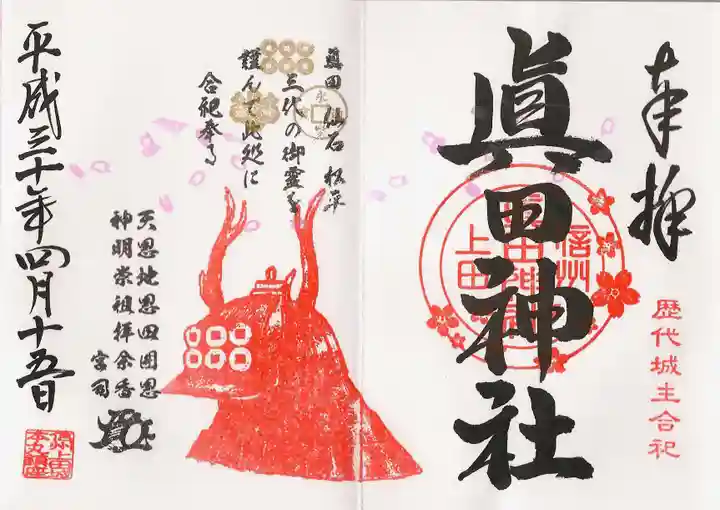 奉拝
眞田神社
信州
上田
歴代城主合祀
真田 仙石 松平
三代の御霊を
謹んで此処に
合祀奉る
天恩地恩四囲恩
神明崇祖拝余香
宮司
平成三十年四月十五日